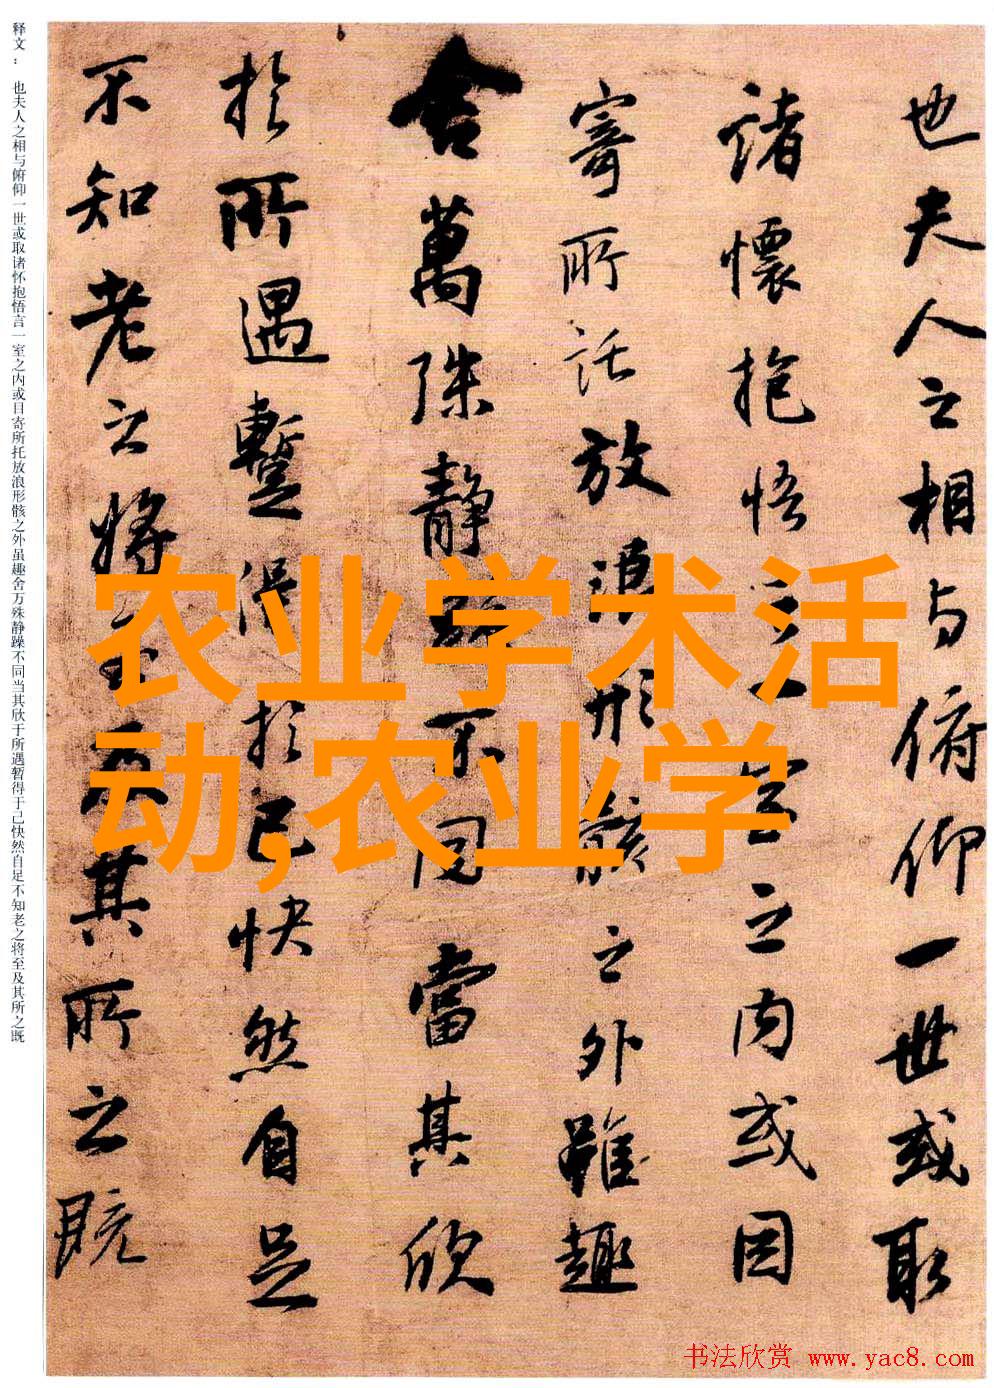 也夫人之相与俯仰一世或取
諸懷抱悟言一室之内或因
寄所託放浪形骸之外雖趣
舍萬殊静躁不同當其欣
於所遇蹔得於己快然自足
不知老之将至及其所之既
释文： 也夫人之相与俯仰一世或取诸怀抱悟言一室之内或目寄所托放浪形骸之外虽趣舍万殊静躁不同当其欣于所遇暂得于己快然自足不知老之将至及其所之既
农业学术活
动,农业学
书法欣赏 www.yac8.com